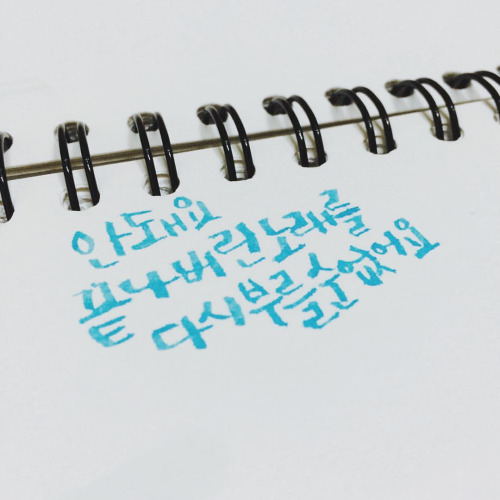 안돼요
끝나버린 노래를
다시 부를 순 없어요